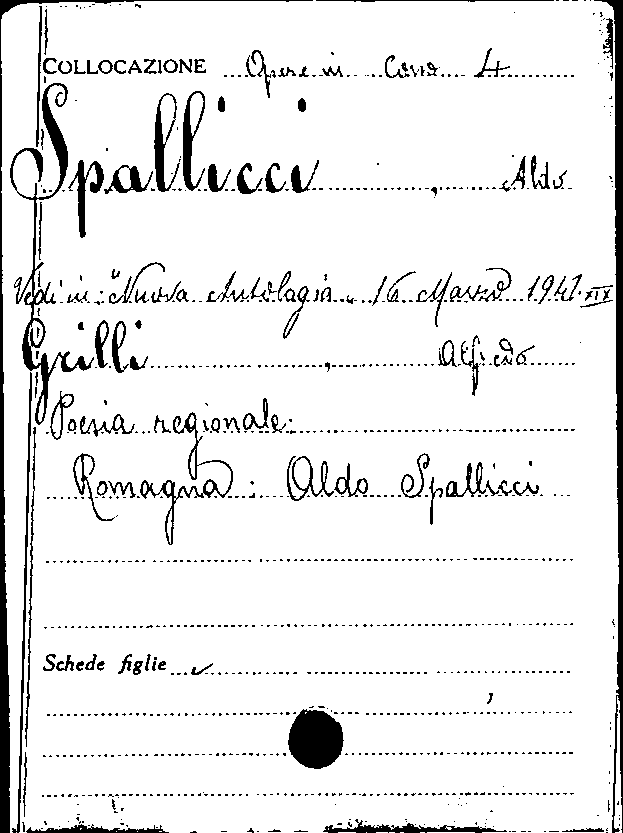 COLLOCAZIONE Opere in Corso 4
Spallicci, Aldo
Vedi in: "Nuova Antologia" 16 Marzo 1941. XIX
Grilli, Alfredo
Poesia regionale:
Romagna: Aldo Spallicci
Schede figlie